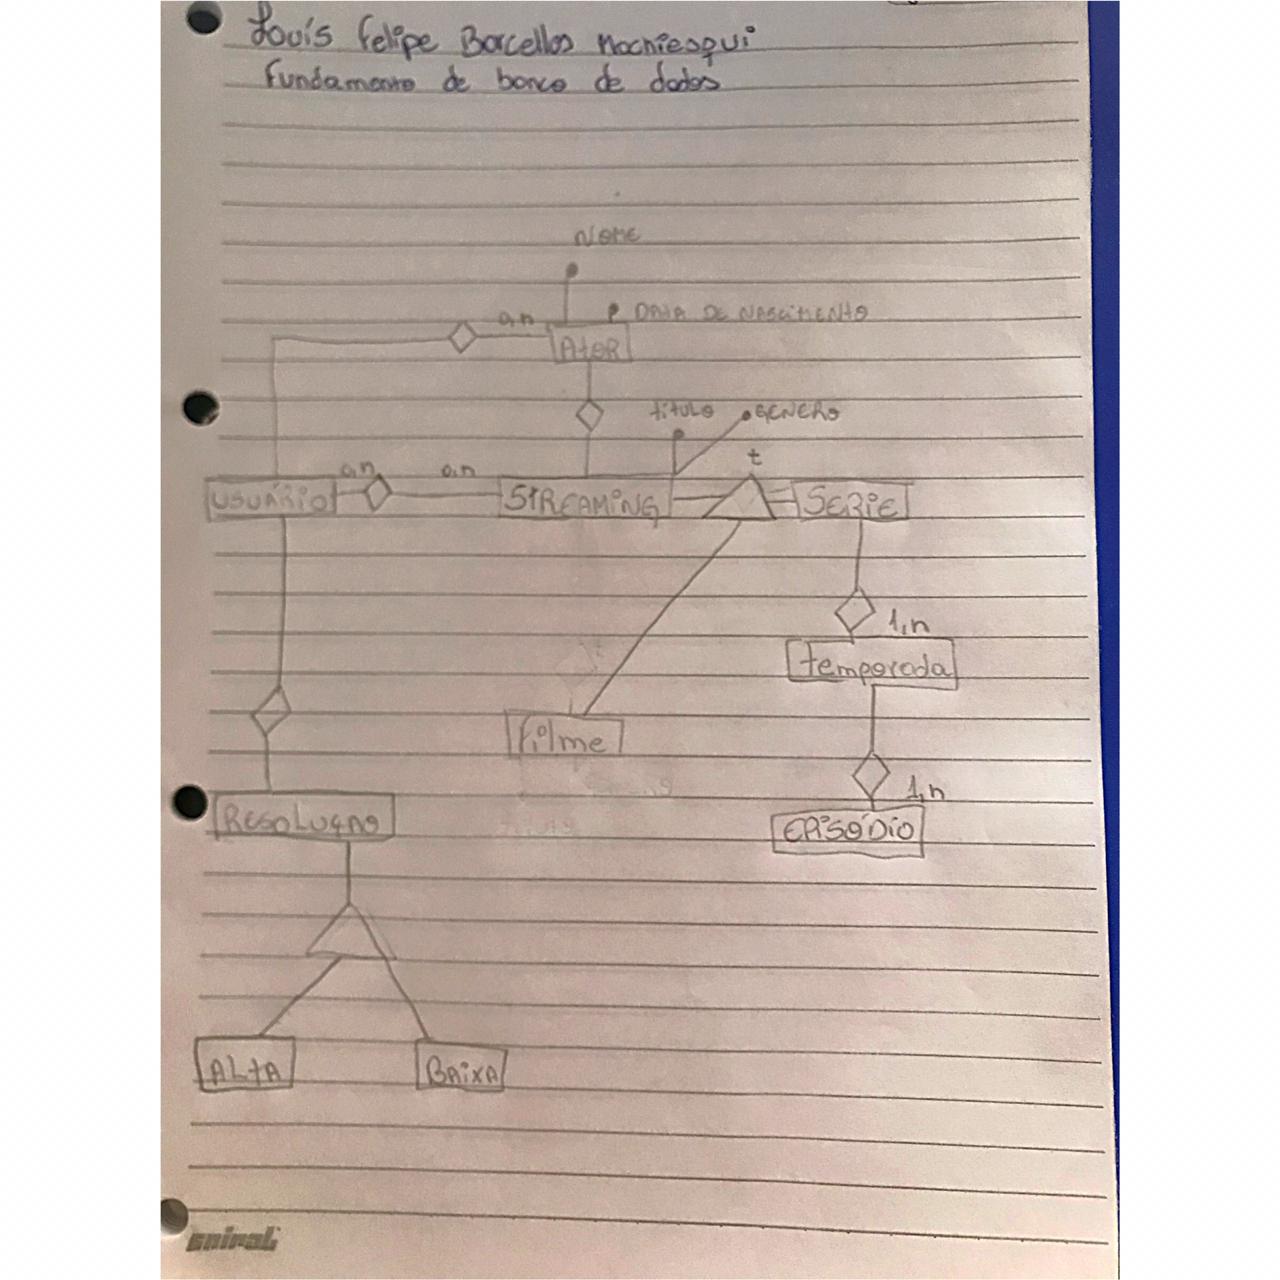 Louís Felipe Barcellos Mocniesqui
Fundamento de banco de dados
NOME
0,n
DATA DE NASCIMENTO
AtOR
título
GENERO
t
0,n
0,n
USUÁRIO
STREAMING
SERIE
1,n
temporada
filme
1,n
RESOLUÇÃO
EPISÓDIO
ALTA
BAIXA
spiral